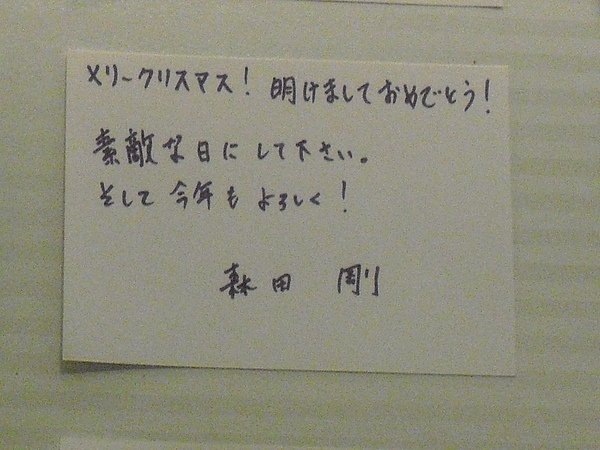 メリークリスマス! 明けましておめでとう!
素敵な日にして下さい。
そして今年もよろしく!
森田 剛